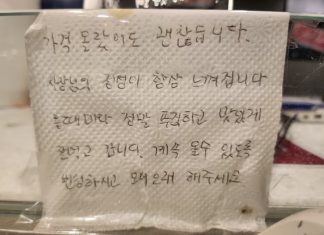 가격 올랐어도 괜찮습니다.
사장님의 심정이 항상 느껴집니다
올때마다 정말 푸짐하고 맛있게
잘먹고 갑니다. 계속 올수 있도록
번성하시고 오래오래 해주세요